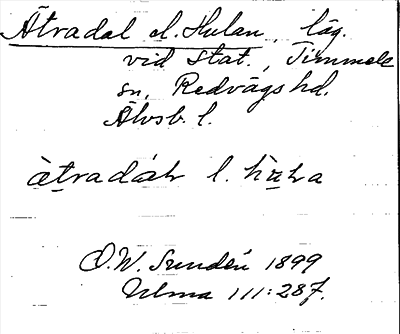 Ätradal el. Hulan, läg.
vid stat., Timmele
sn, Redvägs hd.
Älvsb. l.
ätradáh l. hùla
O.W. Sundén 1899
Ulma 111:287.